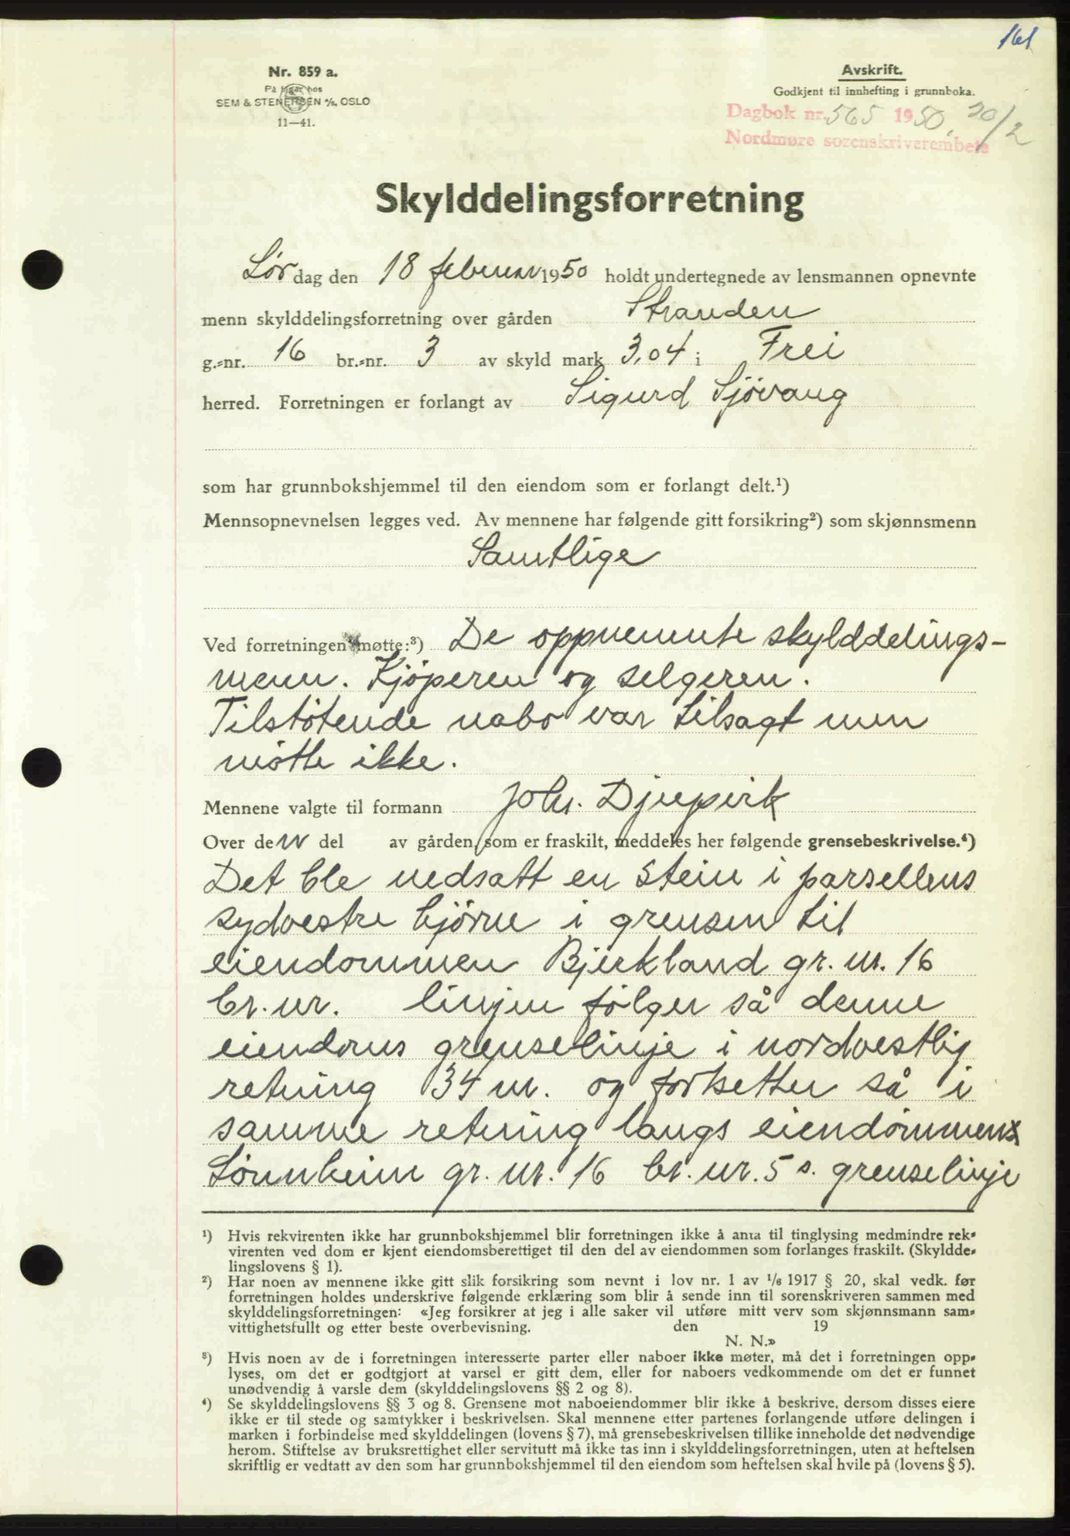 161
Nr. 859 a.
På lager hos
SEM & STENERSEN A/S, OSLO
11—41.
Avskrift.
Godkjent til innhefting i grunnboka.
Dagbok nr. 565 1950, 20/2
Nordmøre sorenskriverembete
Skylddelingsforretning
Lørdag den 18 februar 1950 holdt undertegnede av lensmannen opnevnte
menn skylddelingsforretning over gården Stranden
g.-nr. 16 br.-nr. 3 av skyld mark 3,04 i Frei
herred. Forretningen er forlangt av Sigurd Sjövaug
som har grunnbokshjemmel til den eiendom som er forlangt delt.¹)
Mennsopnevnelsen legges ved. Av mennene har følgende gitt forsikring²) som skjønnsmenn
Samtlige
Ved forretningen møtte:³) De oppnevnte skylddelings-
menn. Kjöperen og selgeren.
Tilstötende nabo var tilsagt men
mötte ikke.
Mennene valgte til formann Johs. Djupvik
Over den del av gården, som er fraskilt, meddeles her følgende grensebeskrivelse.⁴)
Det ble nedsatt en stein i parsellens
sydvestre hjörne i grensen til
eiendommen Bjerkland gr. nr. 16
br. nr. linjen fölger så denne
eiendoms grenselinje i nordvestlig
retning 34 m. og fortsetter så i
samme retning langs eiendommens
Sörnheim gr. nr. 16 br. nr. 5 s. grenselinje
¹) Hvis rekvirenten ikke har grunnbokshjemmel blir forretningen ikke å anta til tinglysing medmindre rek-
virenten ved dom er kjent eiendomsberettiget til den del av eiendommen som forlanges fraskilt. (Skyldde-
lingslovens § 1).
²) Har noen av mennene ikke gitt slik forsikring som nevnt i lov nr. 1 av 1/6 1917 § 20, skal vedk. før
forretningen holdes underskrive følgende erklæring som blir å sende inn til sorenskriveren sammen med
skylddelingsforretningen: «Jeg forsikrer at jeg i alle saker vil utføre mitt verv som skjønnsmann sam-
vittighetsfullt og etter beste overbevisning. den 19
N. N.»
³) Hvis noen av de i forretningen interesserte parter eller naboer ikke møter, må det i forretningen opp-
lyses, om det er godtgjort at varsel er gitt dem, eller for naboers vedkommende om det er funnet
unødvendig å varsle dem (skylddelingslovens §§ 2 og 8).
⁴) Se skylddelingslovens §§ 3 og 8. Grensene mot naboeiendommer blir ikke å beskrive, dersom disses eiere
ikke er til stede og samtykker i beskrivelsen. Skal mennene etter partenes forlangende utføre delingen i
marken i forbindelse med skylddelingen (lovens § 7), må grensebeskrivelsen tillike inneholde det nødvendige
herom. Stiftelse av bruksrettighet eller servitutt må ikke tas inn i skylddelingsforretningen, uten at heftelsen
skriftlig er vedtatt av den som har grunnbokshjemmel til den eiendom som heftelsen skal hvile på (lovens § 5).